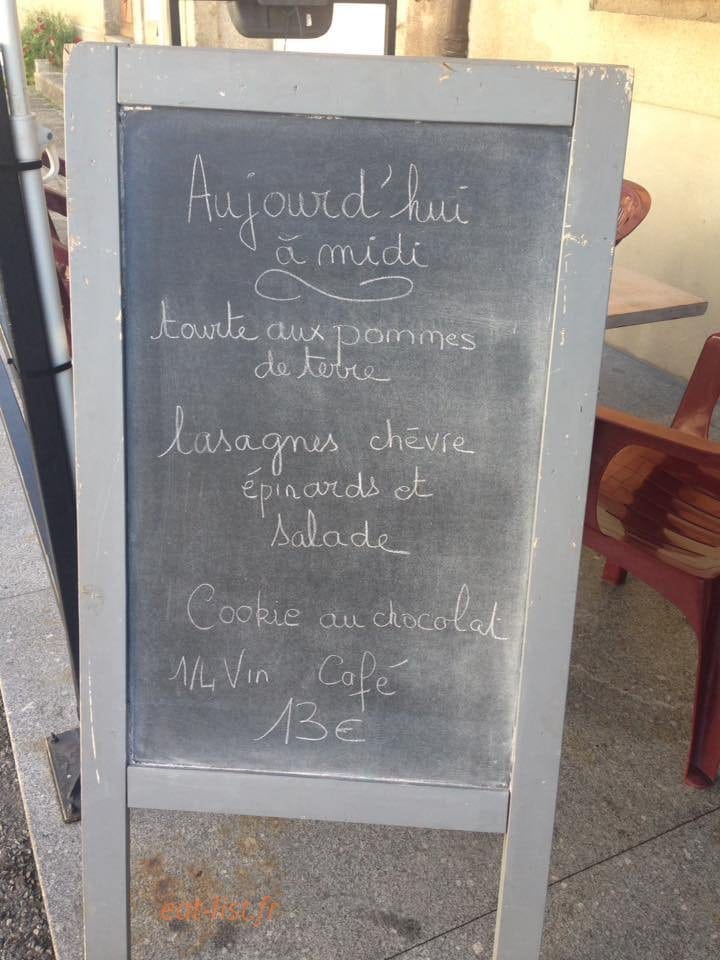 Aujourd'hui
à midi
tourte aux pommes
de terre
lasagnes chèvre
épinards et
salade
Cookie au chocolat
1/4 Vin Café
13€
eat-list.fr